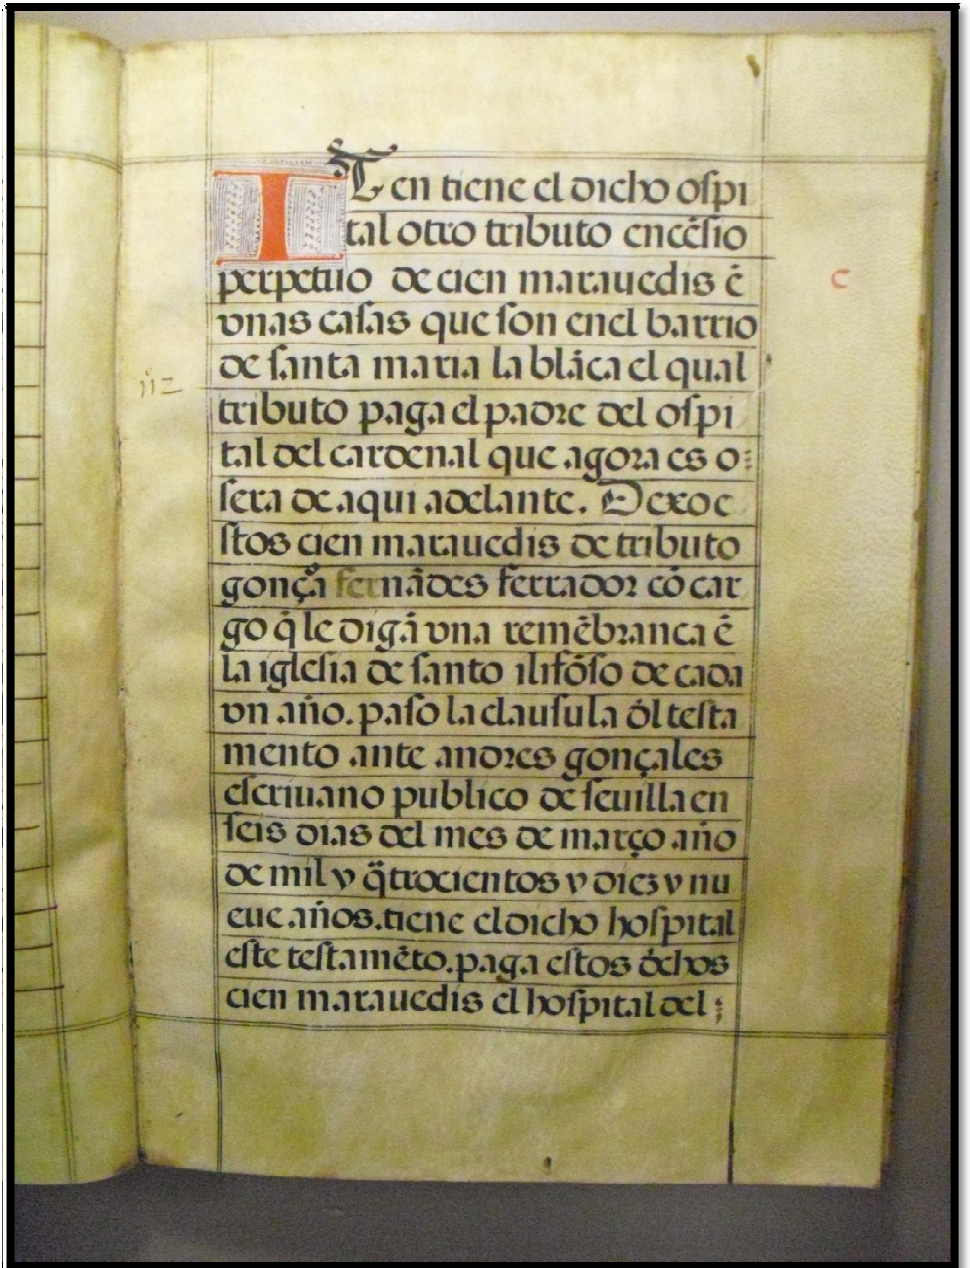 ITen tiene el dicho ospi
tal otro tributo encẽsio
perpetuo de cien marauedis ẽ
vnas casas que son enel barrio
de santa maria la blãca el qual
tributo paga el padre del ospi
tal del cardenal que agora es o
sera de aqui adelante. Dexo e
stos cien marauedis de tributo
gonçã fernãdes ferrador cõ car
go q̃ le digã vna remẽbranca ẽ
la iglesia de santo ilifõso de cada
vn año. paso la clausula d̃l testa
mento ante andres gonçales
escriuano publico de seuilla en
seis dias del mes de março año
de mil y q̃trocientos y diez y nu
eue años. tiene el dicho hospital
este testamẽto. paga estos d̃chos
cien marauedis el hospital del
c